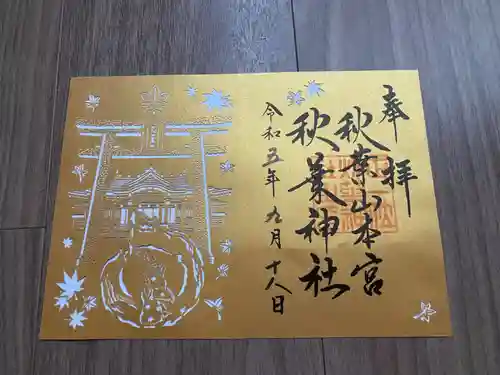 奉拝
秋葉山本宮
秋葉神社
令和五年 九月 十八日